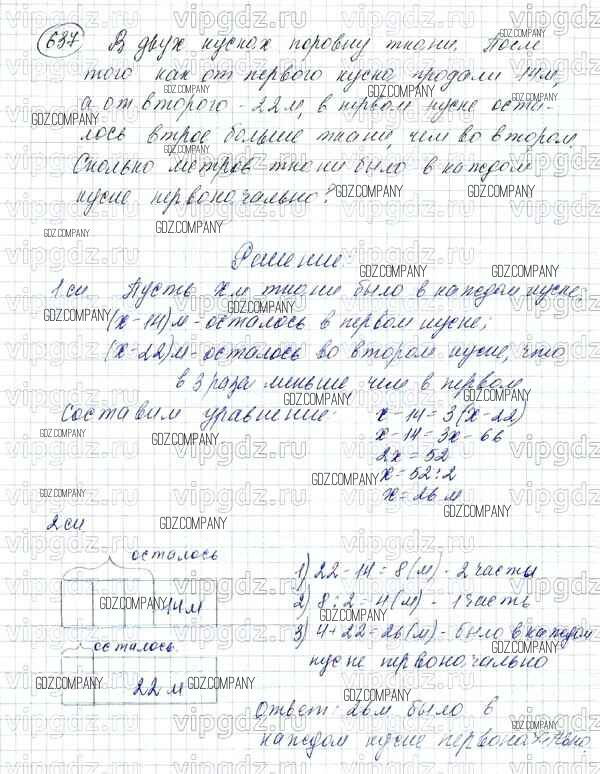 637 В двух кусках поровну ткани. После
того как от первого куска продали 14 м,
а от второго - 22 м, в первом куске оста-
лось втрое больше ткани, чем во втором.
Сколько метров ткани было в каждом
куске первоначально?
Решение:
1 сп Пусть х м ткани было в каждом куске,
(х-14) м - осталось в первом куске,
(х-22) м - осталось во втором куске, что
в 3 раза меньше чем в первом
Составим уравнение:
х-14=3(х-22)
х-14=3х-66
2х=52
х=52:2
х=26 м
2 сп
осталось
14 м
осталось
22 м
1) 22-14=8(м) - 2 части
2) 8:2=4(м) - 1 часть
3) 4+22=26(м) - было в каждом
куске первоначально
Ответ: 26 м было в
каждом куске первоначально
vipgdz.ru
GDZ.COMPANY